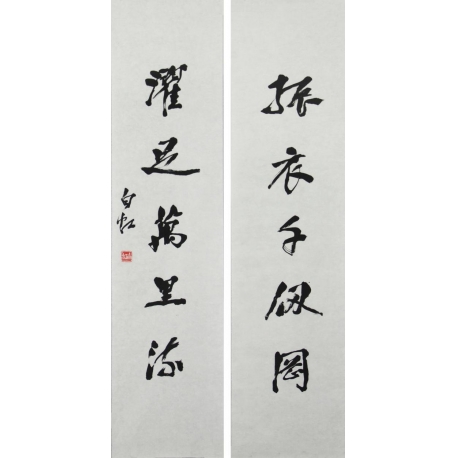 振衣千仞岡
濯足萬里流
白虹